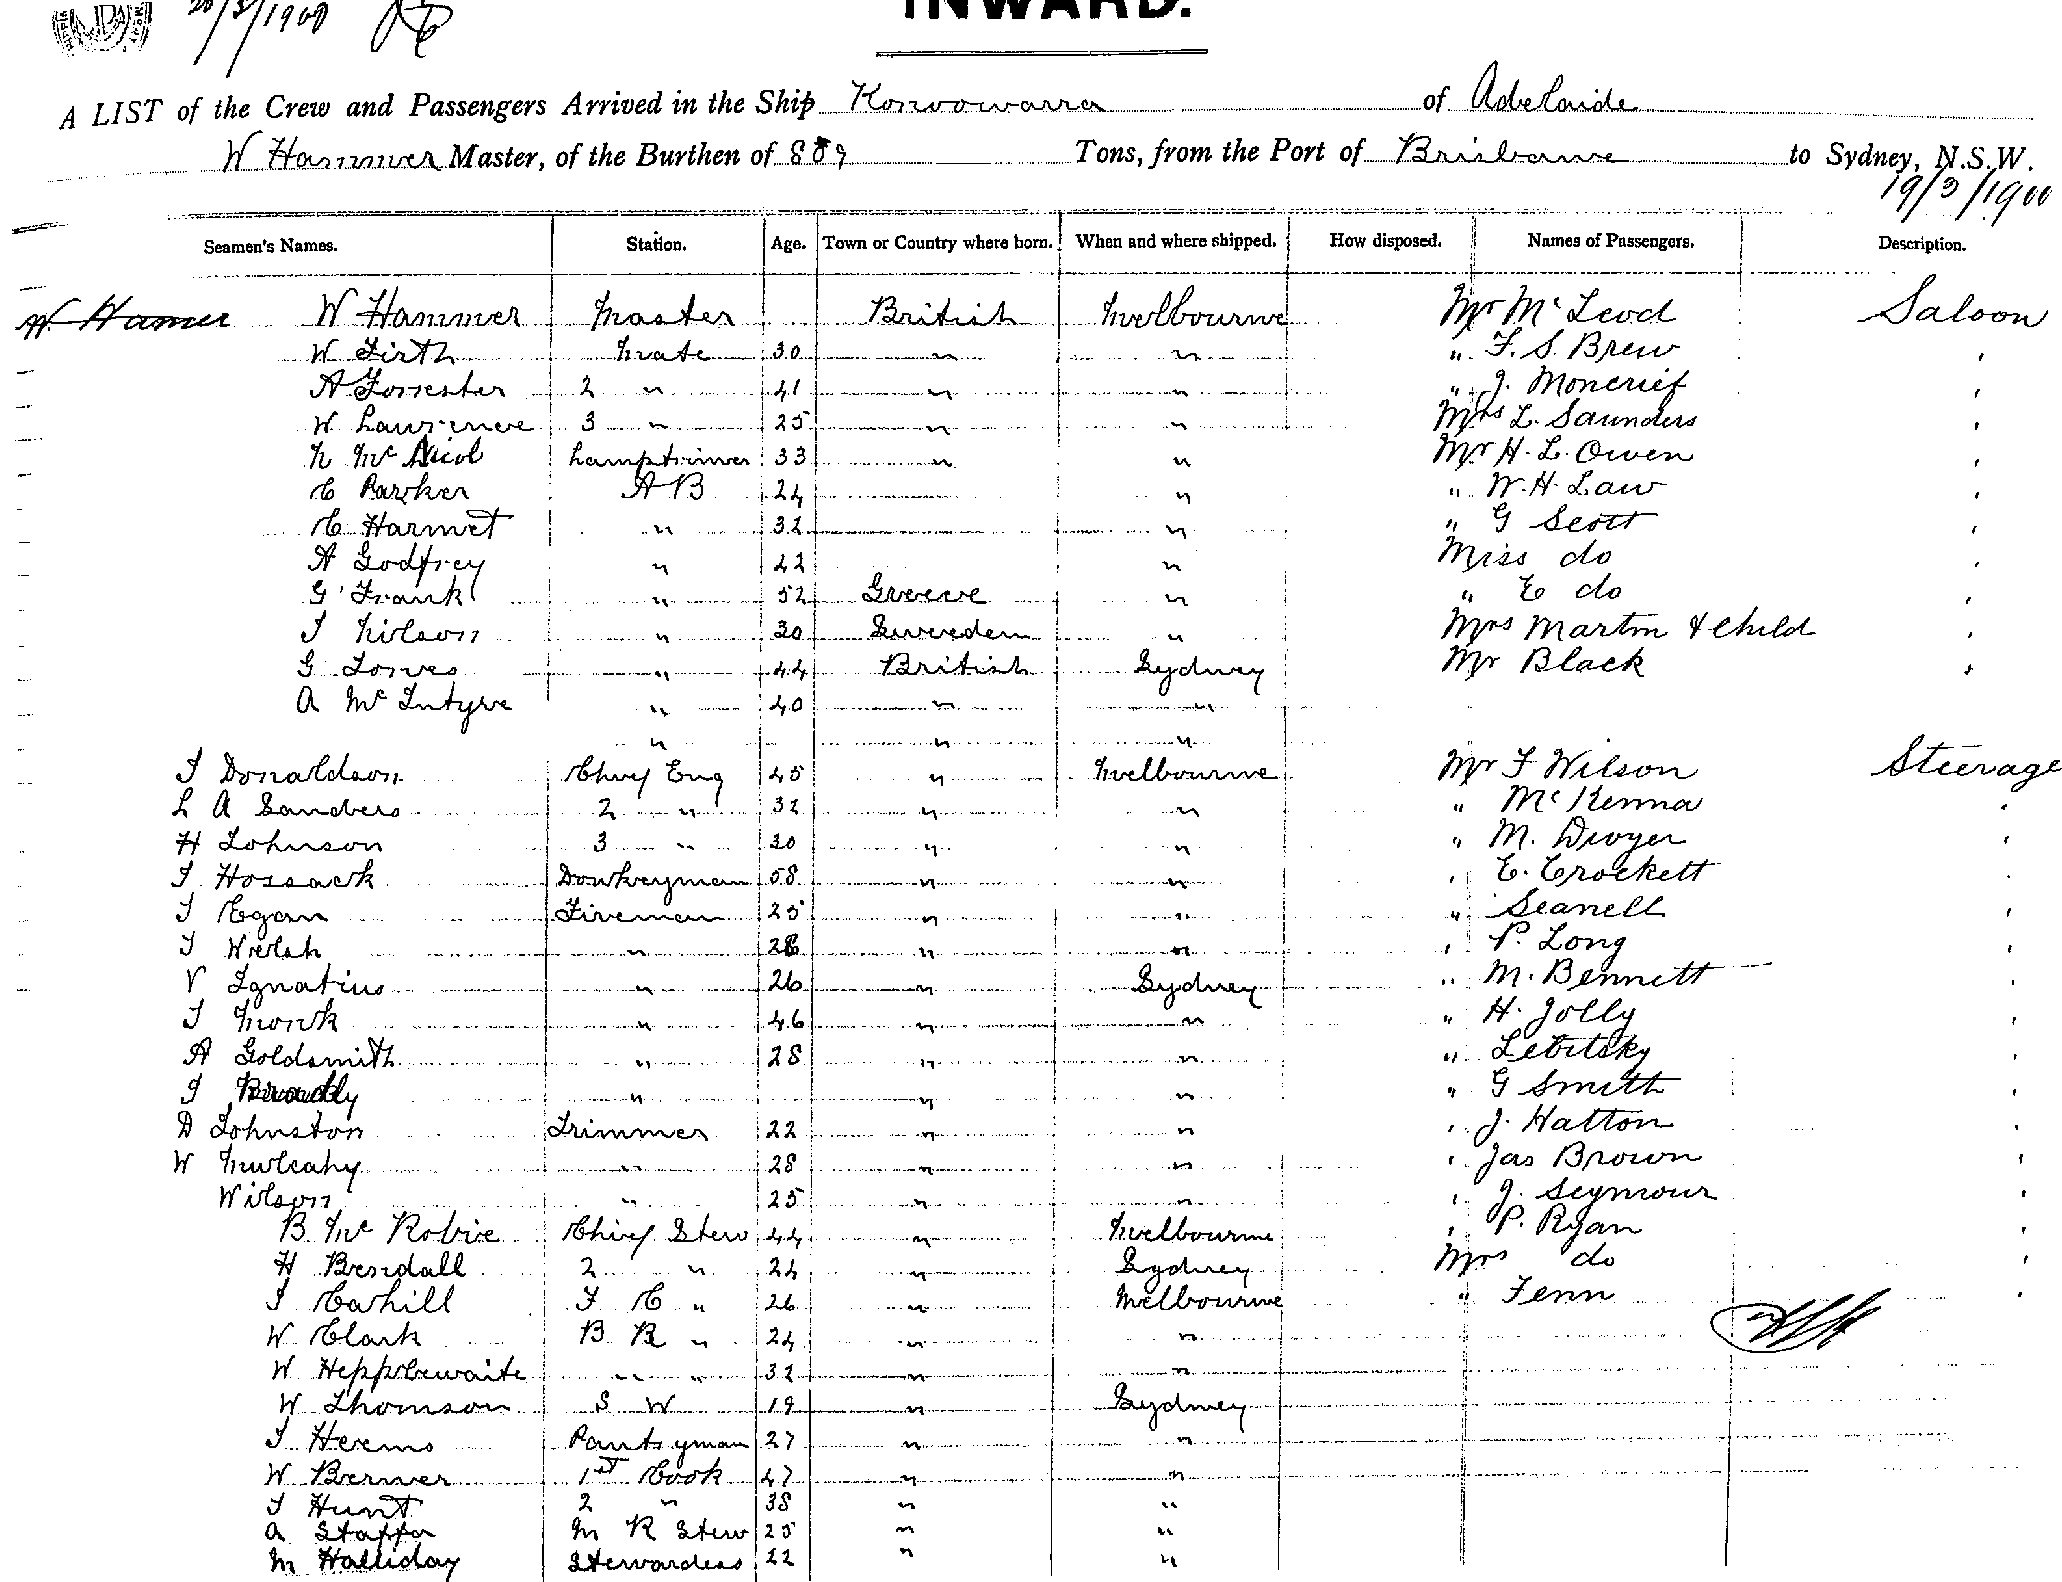 20/3/1900
INWARD.
A LIST of the Crew and Passengers Arrived in the Ship Konoowarra of Adelaide
W Hammer Master, of the Burthen of 889 Tons, from the Port of Brisbane to Sydney, N.S.W.
19/3/1900
Seamen's Names. Station. Age. Town or Country where born. When and where shipped. How disposed. Names of Passengers. Description.
W. Hamer W Hammer Master British Melbourne Mr Mc Leod Saloon
W Firth Mate 30 " " " F. S. Brew "
A Forrester 2 " 41 " " " J. Moncrief "
W Lawrence 3 " 25 " " Mrs L. Saunders "
N Mc Nicol Lamptrimer 33 " " Mr H. L. Owen "
C Parker A B 24 " " W. H. Law "
C Harmet " 32 " " G Scott "
A Godfrey " 42 " Miss do "
G Frank " 52 Greece " " E do "
J Nilson " 30 Sweden " Mrs Martin & Child "
G Jones " 44 British Sydney Mr Black "
A Mc Intyre " 40 " "
" " "
J Donaldson Chief Eng 45 " Melbourne Mr F Wilson Steerage
L A Sanders 2 " 32 " " " Mc Kenna "
H Johnson 3 " 30 " " " M. Dwyer "
J Hossack Donkeyman 58 " " " E. Crockett "
J Egan Fireman 25 " " " Scanell "
J Welsh " 28 " " " P. Long "
V Ignatius " 26 " Sydney " M. Bennett "
J Monk " 46 " " " H. Jolly "
A Goldsmith " 28 " " " Lebitsky "
J Bradly " " " " G Smith "
D Johnston Trimmer 22 " " " J. Hatton "
W Mulcahy " 28 " " " Jas Brown "
Wilson " 25 " " " J. Seymour "
B. Mc Robie Chief Stew 44 " Melbourne " P. Ryan "
H Bendall 2 " 24 " Sydney Mrs do "
J Cahill F C " 26 " Melbourne " Fenn "
W Clark B R " 24 " "
W Hepplewaite " " 32 " "
W Thomson S W 19 " Sydney
J Heems Pantryman 27 " "
W Berner 1st Cook 47 " "
J Hunt 2 " 38 " "
A Staffa M R Stew 25 " "
M Halliday Stewardess 22 " "